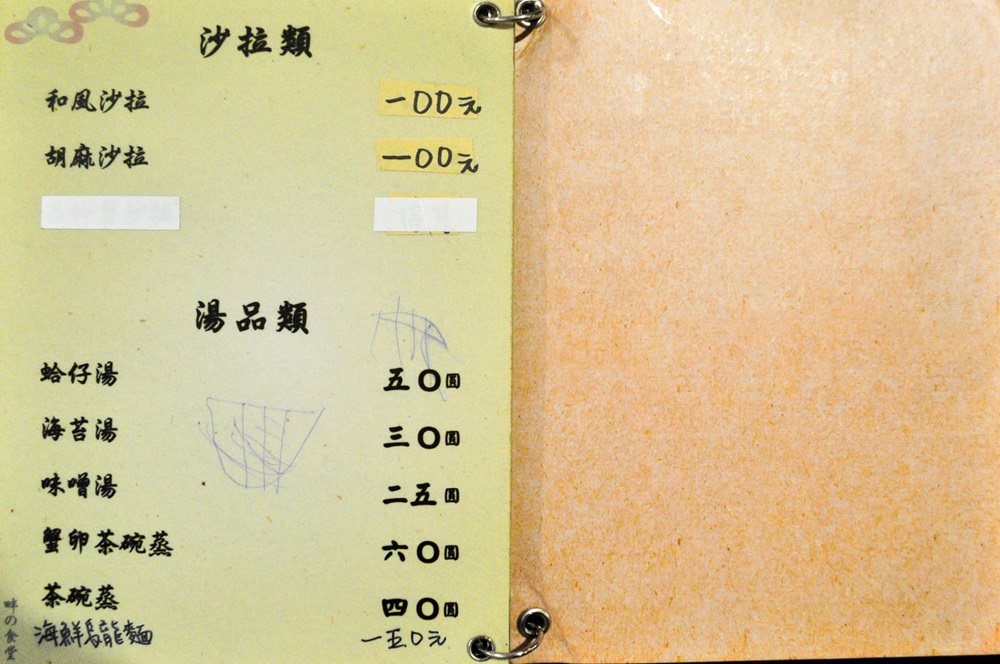 沙拉類
和風沙拉 一００元
胡麻沙拉 一００元
湯品類
蛤仔湯 五〇圓
海苔湯 三〇圓
味噌湯 二五圓
蟹卵茶碗蒸 六〇圓
茶碗蒸 四〇圓
海鮮烏龍麵 一五０元
畔の食堂